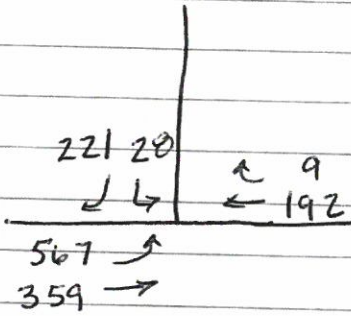 221 20
9
192
567
359